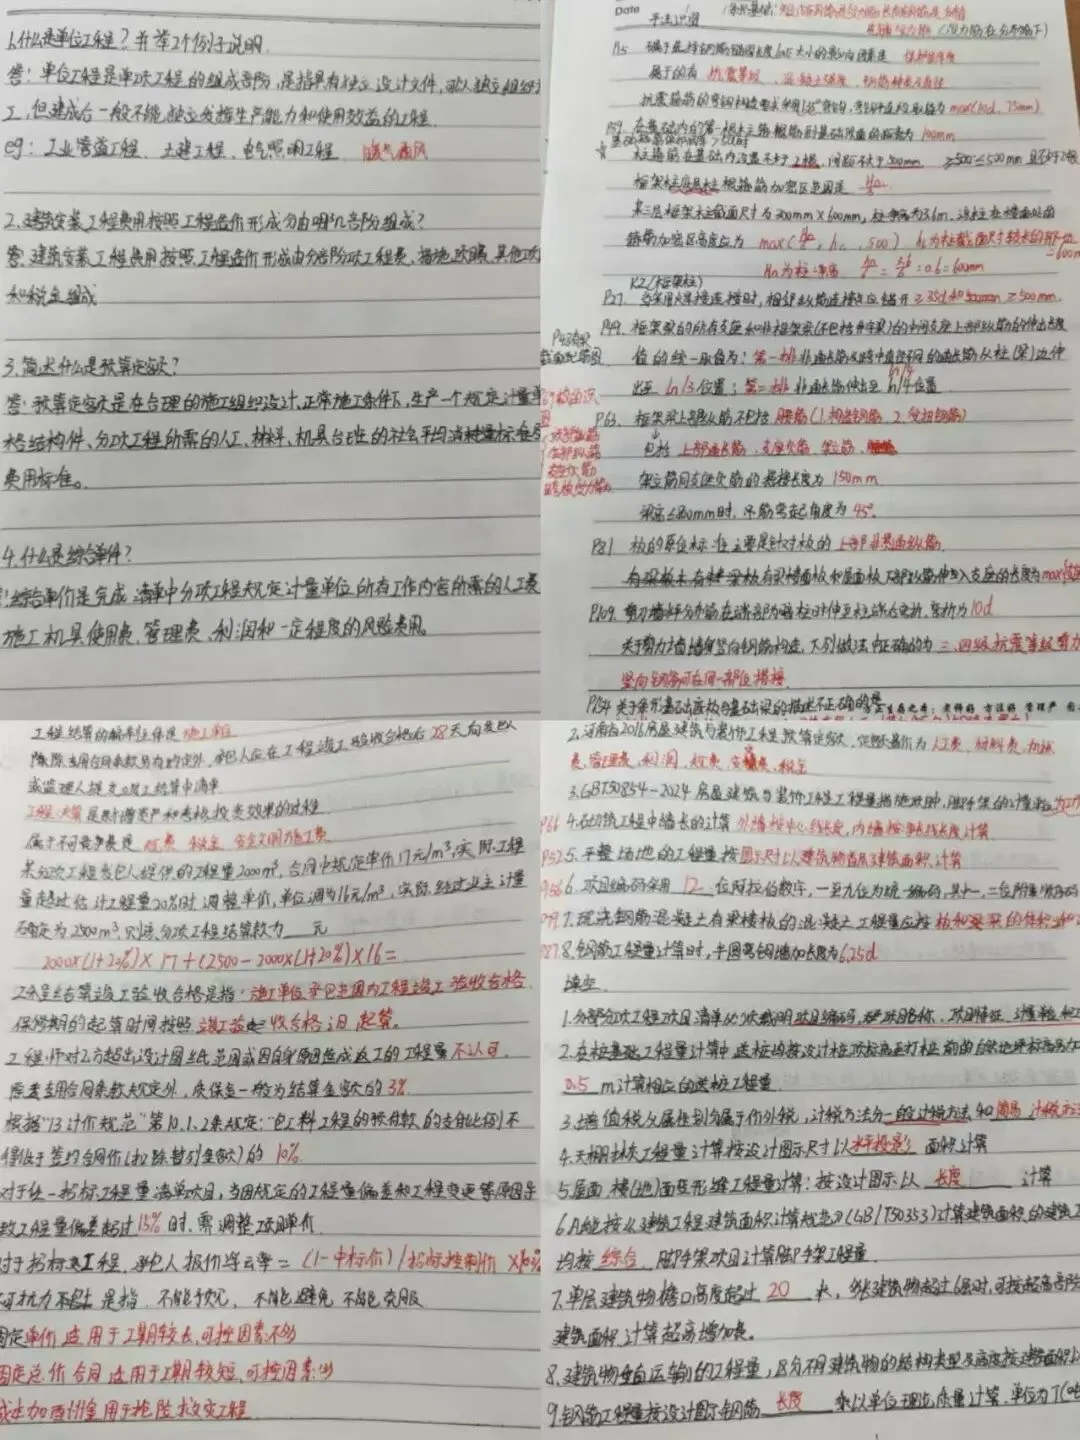 1.什么是单位工程?并举2个例子说明.
答:单位工程是单项工程的组成部分,是指具有独立设计文件,可以独立组织
工,但建成后一般不能独立发挥生产能力和使用效益的工程.
eg:工业管道工程、土建工程、电气照明工程、暖气通风
2.建筑安装工程费用按照工程造价形成分由哪几部分组成?
答:建筑安装工程费用按照工程造价形成由分部分项工程费、措施项目费、其他项
和税金组成
3.简述什么是预算定额?
答:预算定额是在合理的施工组织设计,正常施工条件下,生产一个规定计量单
格结构件、分项工程所需的人工、材料、机具台班的社会平均消耗量标准
费用标准。
4.什么是综合单价?
综合单价是完成清单中分项工程规定计量单位所有工作内容所需的人工费
施工机具使用费、管理费、利润和一定程度的风险费用。
Date
平法识图
抗震箍筋的弯钩构造要求采用135°弯钩,弯钩平直段取值为max(10d,75mm)
P59.在基础内的第一根柱箍筋到基础顶面的距离为100mm
柱箍筋在基础内设置不少于2根,间距不大于500mm
某二层框架柱截面尺寸为300mm×600mm,柱净高为3.6m,该柱在楼面处的
箍筋加密区高度应为 max(Hn/6, hc, 500)
Hn为柱净高
KZ(框架柱)
P27.当采用焊接连接时,相邻纵筋连接点应错开≥35d和500mm
P49.框架梁的所有支座和非框架梁(不包括井字梁)的中间支座上部纵筋的伸出长度
值的统一取值为:第一排非通长筋及跨中直径不同的通长筋从柱(梁)边伸
出至ln/3位置;第二排非通长筋伸出至ln/4位置
P63.框架梁上部纵筋不包括 腰筋(1.构造钢筋、2.受扭钢筋)
包括 上部通长筋、支座负筋、架立筋、
架立筋同支座负筋的搭接长度为150mm
梁高≤800mm时,吊筋弯起角度为45°.
P81 板的原位标注主要是针对板的上部非贯通纵筋.
P109.剪力墙水平分布筋在端部为暗柱时伸至柱端后弯折,弯折为10d
关于剪力墙墙身竖向钢筋构造,下列做法中正确的为 三、四级抗震等级剪力
竖向钢筋可在同一部位搭接.
P154关于条形基础底板与基础梁的描述不正确的是
工程结算的编制主体是施工单位
除专用合同条款另有约定外,承包人应在工程竣工验收合格后28天向发包人
或监理人提交竣工结算申请单
工程决算是新增资产和考核投资效果的过程
属于不可竞争费是 规费 税金 安全文明施工费
某分项工程发包人提供的工程量2000m³,合同中规定单价17元/m³,实际工程
量超过估计工程量20%时,调整单价,单位调为16元/m³,实际经过业主计量
确定为2500m³,则该分项工程结算款为___元
2000×(1+20%)×17+(2500-2000×(1+20%)×16=
工程结算竣工验收合格是指:施工单位承包范围内工程竣工验收合格.
保修期的起算时间按照竣工验收合格之日起算。
工程师对乙方超出设计图纸范围或因自身原因造成返工的工程量不认可.
除专用合同条款规定外,质保金一般为结算金额的3%.
根据“13计价规范”第10.1.2条规定:“包工料工程的预付款的支付比例不
得低于签约合同价(扣除暂列金额)的10%.
对于任一招标工程量清单项目,当因规定的工程量偏差和工程变更等原因导
致工程量偏差超过15%时,需调整工项单价.
对于招标工程,承包人报价浮动率=(1-中标价)/招标控制价×100%
不可抗力 是指,不能预见、不能避免、不能克服
固定单价适用于工期较长,可控因素不多
固定总价合同适用于工期较短,可控因素少
成本加酬金用于抢险救灾工程.
2.河南省2016房屋建筑与装饰工程预算定额,定额基价为人工费、材料费、机械
费、管理费、利润、规费、安文费、税金
3.GBT50854-2024房屋建筑与装饰工程工程量措施项目中,脚手架的计量单位为
P66 4.砌筑工程中墙长的计算 外墙按中心线长度,内墙按净长线长度计算
5.平整场地的工程量按图示尺寸以建筑物首层建筑面积计算
6.项目编码采用12位阿拉伯数字,一至九位为统一编码,其十
7.现浇钢筋混凝土有梁楼板的混凝土工程量应按板和梁的体积
8.钢筋工程量计算时,半圆弯钩增加长度为6.25d
填空.
1.分部分项工程项目清单必须载明项目编码、项目名称、项目特征、计量单位和工
2.在桩基础工程量计算中,送桩均按设计桩顶标高至打桩前的自然地坪标高另加
0.5 m计算相应的送桩工程量.
3.增值税从属性划分属于价外税,计税方法分一般计税方法和简易计税方法
4.天棚抹灰工程量计算按设计图示尺寸以水平投影面积计算
5.屋面、楼(地)面变形缝工程量计算:按设计图示以 长度 计算
6.凡能按《建筑工程建筑面积计算规范》(GB/T50353)计算建筑面积的建筑工
均按 综合 脚手架项目计算脚手架工程量
7.单层建筑物檐口高度超过 20 米,多层建筑物超过6层时,可按超高部
建筑面积计算超高增加费。
8.建筑物垂直运输的工程量,区分不同建筑物的结构类型及高度按建筑面积以
9.钢筋工程量按设计图示钢筋 长度 乘以单位理论质量计算,单位为T(吨